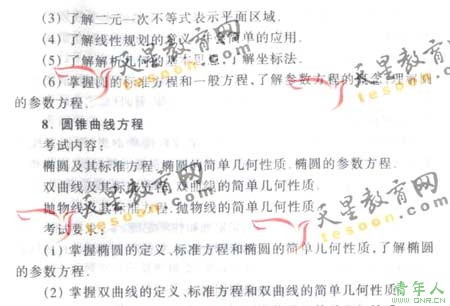 (3) 了解二元一次不等式表示平面区域.
(4) 了解线性规划的意义,并会简单的应用.
(5) 了解解析几何的基本思想,了解坐标法.
(6) 掌握圆的标准方程和一般方程,了解参数方程的概念,理解圆
的参数方程.
8. 圆锥曲线方程
考试内容:
椭圆及其标准方程.椭圆的简单几何性质.椭圆的参数方程.
双曲线及其标准方程.双曲线的简单几何性质.
抛物线及其标准方程.抛物线的简单几何性质.
考试要求:
(1) 掌握椭圆的定义、标准方程和椭圆的简单几何性质,了解椭圆
的参数方程.
(2) 掌握双曲线的定义、标准方程和双曲线的简单几何性质.
天星教育网
tesoon.com
天星教育网
tesoon.com
天星教育网
tesoon.com
天星教育网
tesoon.com
青年人
WWW.QNR.CN